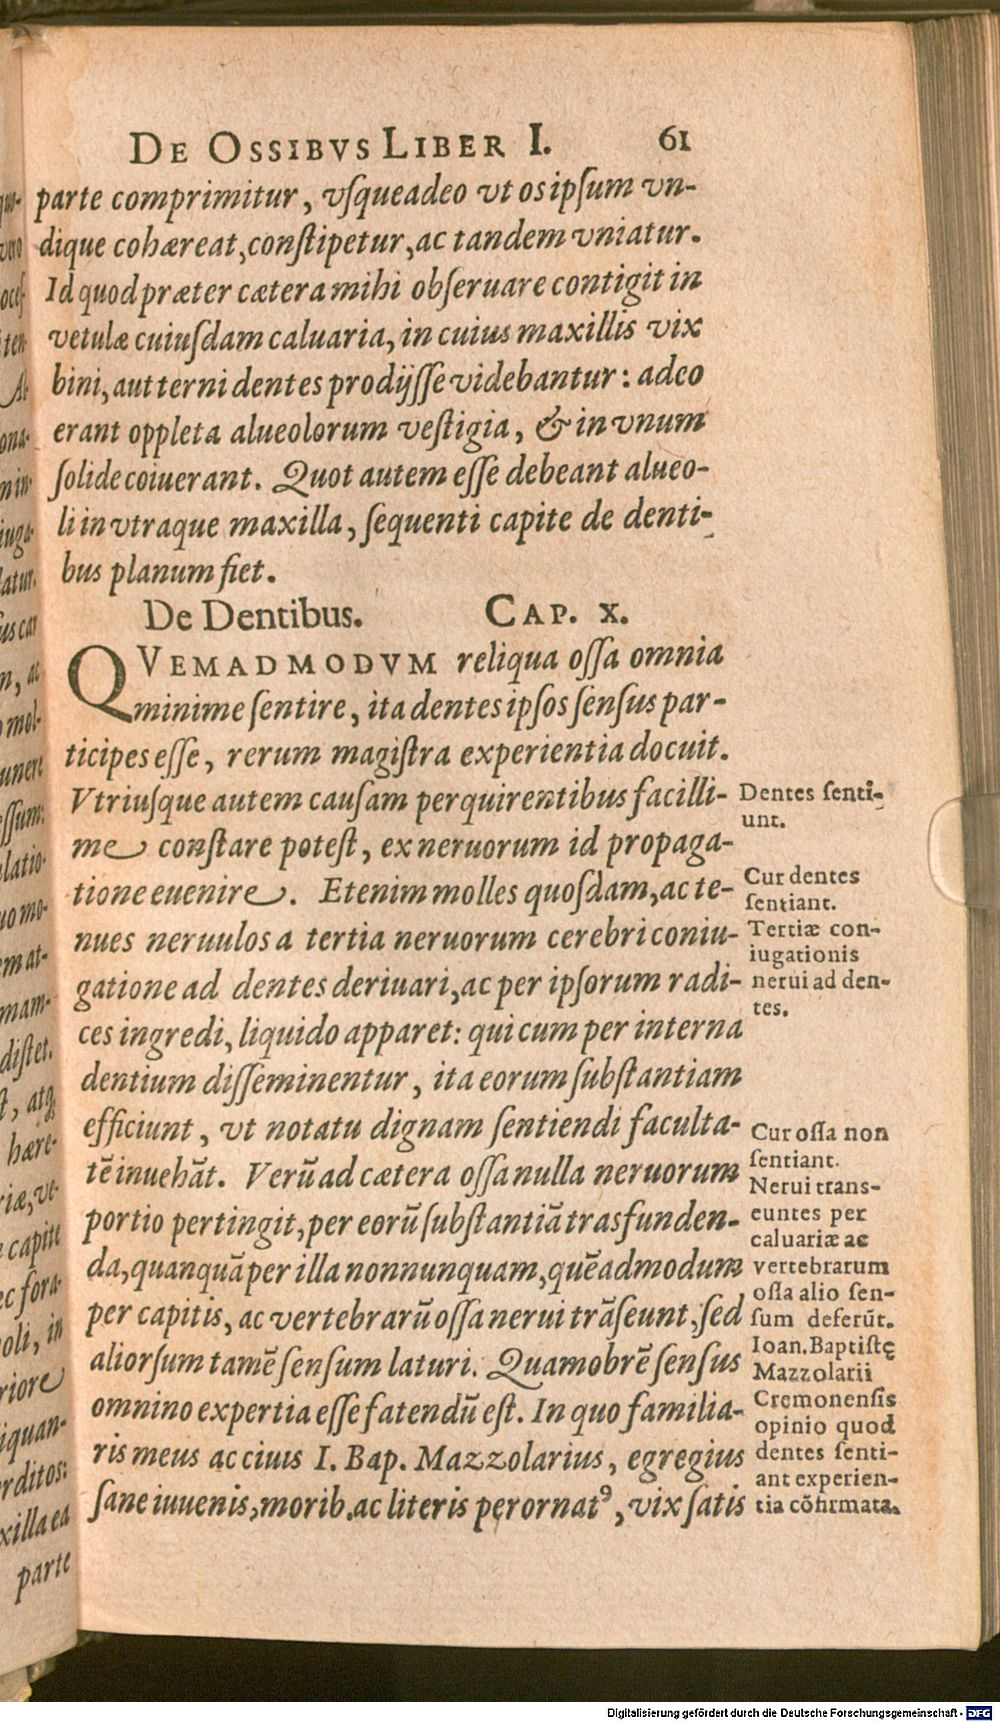 DE OSSIBVS LIBER I. 61
parte comprimitur, vſqueadeo vt os ipſum vn-
dique cohæreat, conſtipetur, ac tandem vniatur.
Id quod præter cætera mihi obſeruare contigit in
vetulæ cuiuſdam caluaria, in cuius maxillis vix
bini, aut terni dentes prodijſſe videbantur: adeo
erant oppleta alueolorum veſtigia, & in vnum
ſolide coiuerant. Quot autem eſſe debeant alueo-
li in vtraque maxilla, ſequenti capite de denti-
bus planum fiet.
De Dentibus. CAP. X.
QVEMADMODVM reliqua oſſa omnia
minime ſentire, ita dentes ipſos ſenſus par-
ticipes eſſe, rerum magiſtra experientia docuit.
Vtriuſque autem cauſam perquirentibus facilli-
me conſtare poteſt, ex neruorum id propaga-
tione euenire. Etenim molles quoſdam, ac te-
nues neruulos a tertia neruorum cerebri coniu-
gatione ad dentes deriuari, ac per ipſorum radi-
ces ingredi, liquido apparet: qui cum per interna
dentium diſſeminentur, ita eorum ſubſtantiam
efficiunt, vt notatu dignam ſentiendi faculta-
tē inuehāt. Verū ad cætera oſſa nulla neruorum
portio pertingit, per eorū ſubſtantiā trasfunden-
da, quanquā per illa nonnunquam, quēadmodum
per capitis, ac vertebrarū oſſa nerui trāſeunt, ſed
aliorſum tamē ſenſum laturi. Quamobrē ſenſus
omnino expertia eſſe fatendū eſt. In quo familia-
ris meus ac ciuis I. Bap. Mazzolarius, egregius
ſane iuuenis, morib. ac literis perornatꝰ, vix ſatis
Dentes ſenti-
unt.
Cur dentes
ſentiant.
Tertiæ con-
iugationis
nerui ad den-
tes.
Cur oſſa non
ſentiant.
Nerui trans-
euntes per
caluariæ ac
vertebrarum
oſſa alio ſen-
ſum deferūt.
Ioan. Baptiſtę
Mazzolarii
Cremonenſis
opinio quod
dentes ſenti-
ant experien-
tia cōfirmata.
quo-
vero
oceſ
iten
A-
ona-
min-
iuga-
latur.
us car
m, ac
mol-
unere
eſſum:
latio-
uo mo-
em at-
mam-
diſtet.
hære-
riæ, ve-
capite
ec fora-
oli, in
riore
iquan-
rditos:
xilla ea
parte
Digitalisierung gefördert durch die Deutsche Forschungsgemeinschaft - DFG